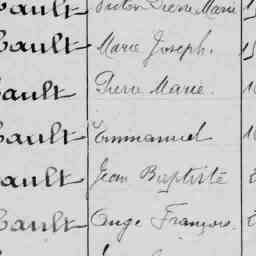 ault Victor Pierre Marie
ault Marie Joseph.
ault Pierre Marie.
ault Emmanuel
ault Jean Baptiste
ault Ange François.